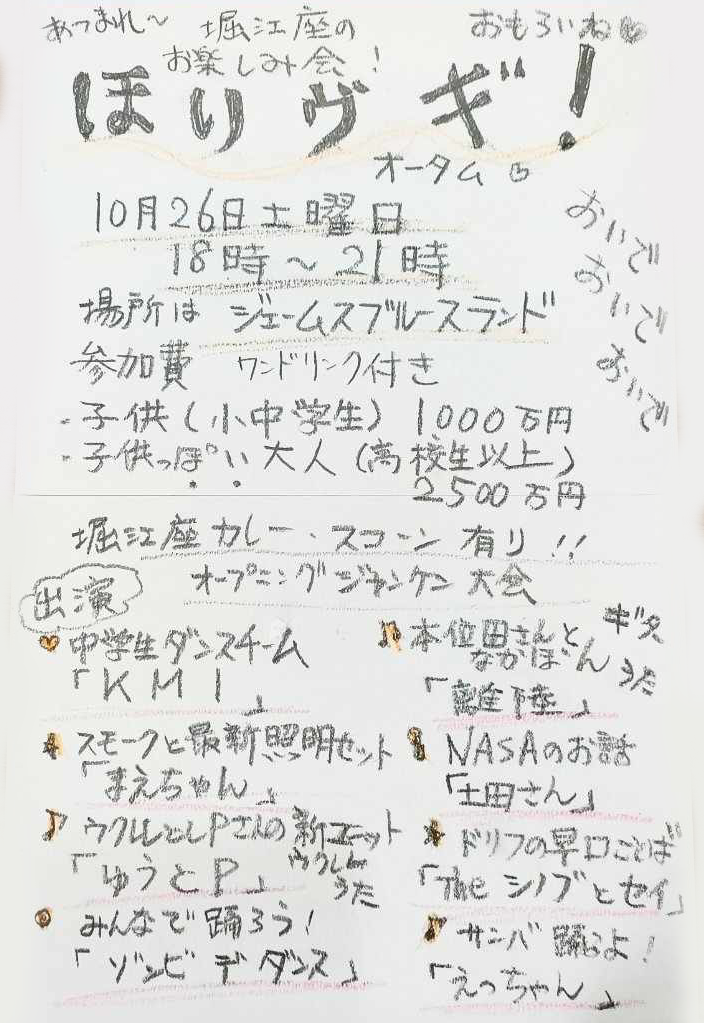 あつまれ〜 堀江座の おもろいね
お楽しみ会！
ほりヴギ！
オータム
10月26日土曜日
18時〜21時
おいで
おいで
おいで
場所は ジェームスブルースランド
参加費 ワンドリンク付き
・子供（小中学生） 1000万円
・子供っぽい大人（高校生以上）
2500万円
堀江座カレー、スコーン 有り!!
オープニングジャンケン大会
出演
中学生ダンスチーム
「KMI」
スモークと最新照明セット
「まえちゃん」
ウクレレとPさんの新ユニット
「ゆうとP」 ウクレレ
うた
みんなで踊ろう！
「ゾンビ デ ダンス」
本位田さんと ギター
なかぼん うた
「離陸」
NASAのお話
「土田さん」
ドリフの早口ことば
「The シノブとセイ」
サンバ 踊るよ！
「えっちゃん」